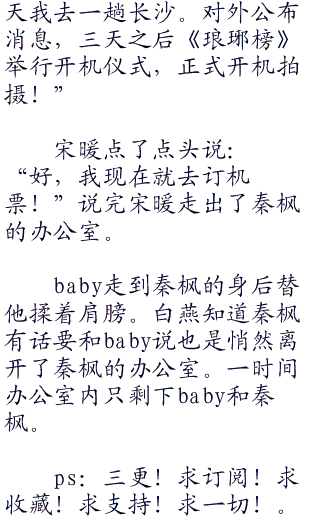 天我去一趟长沙。对外公布
消息，三天之后《琅琊榜》
举行开机仪式，正式开机拍
摄！”
宋暖点了点头说：
“好，我现在就去订机
票！”说完宋暖走出了秦枫
的办公室。
baby走到秦枫的身后替
他揉着肩膀。白燕知道秦枫
有话要和baby说也是悄然离
开了秦枫的办公室。一时间
办公室内只剩下baby和秦
枫。
ps：三更！求订阅！求
收藏！求支持！求一切！。